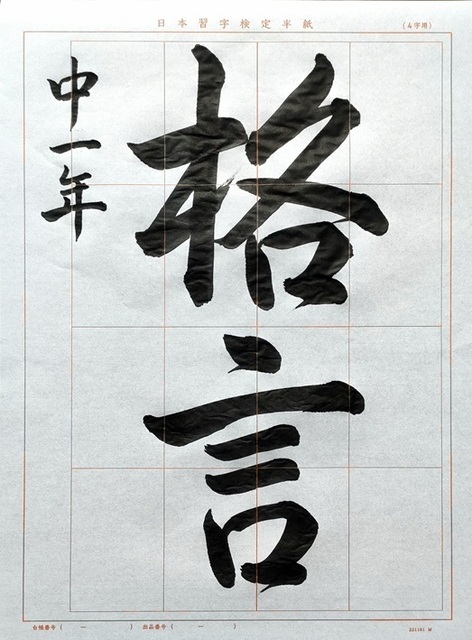 日本習字検定半紙
(4字用)
格言
中一年
台帳番号( ー ) 出品番号( ー )